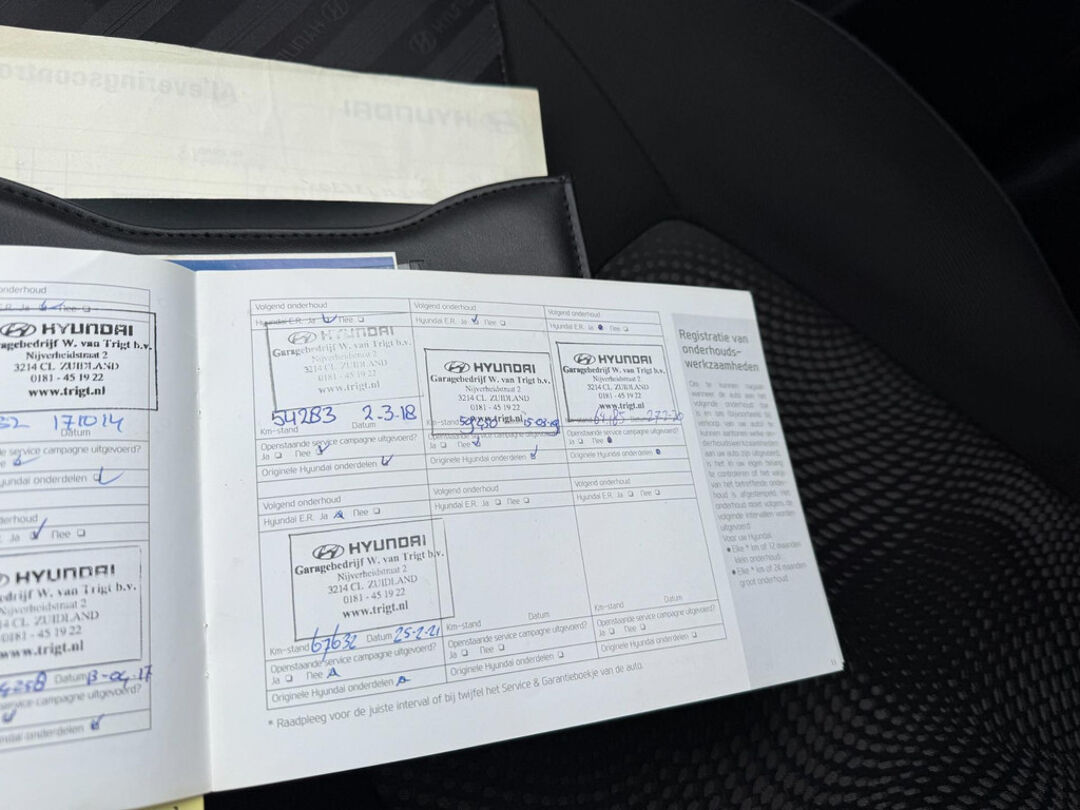 HYUNDAI
Afleveringscontro
HYUNDAI
onderhoud
E.R. Ja Nee
HYUNDAI
agebedrijf W. van Trigt b.v.
Nijverheidstraat 2
3214 CL ZUIDLAND
0181 - 45 19 22
www.trigt.nl
32 171014
Datum
e service campagne uitgevoerd?
yundai onderdelen
derhoud
Ja Nee
HYUNDAI
edrijf W. van Trigt b.v.
Nijverheidstraat 2
14 CL ZUIDLAND
0181 - 45 19 22
www.trigt.nl
Datum 13-04-17
service campagne uitgevoerd?
ndai onderdelen
Volgend onderhoud
Hyundai E.R. Ja Nee
HYUNDAI
Garagebedrijf W. van Trigt b.v.
Nijverheidstraat 2
3214 CL ZUIDLAND
0181 - 45 19 22
www.trigt.nl
54283 2-3-18
Km-stand Datum
Openstaande service campagne uitgevoerd?
Ja Nee
Originele Hyundai onderdelen
Volgend onderhoud
Hyundai E.R. Ja Nee
HYUNDAI
Garagebedrijf W. van Trigt b.v.
Nijverheidstraat 2
3214 CL ZUIDLAND
0181 - 45 19 22
www.trigt.nl
Openstaande service campagne uitgevoerd?
Ja Nee
Originele Hyundai onderdelen
Volgend onderhoud
Hyundai E.R. Ja Nee
HYUNDAI
Garagebedrijf W. van Trigt b.v.
Nijverheidstraat 2
3214 CL ZUIDLAND
0181 - 45 19 22
www.trigt.nl
Openstaande service campagne uitgevoerd?
Ja Nee
Originele Hyundai onderdelen
Volgend onderhoud
Hyundai E.R. Ja Nee
HYUNDAI
Garagebedrijf W. van Trigt b.v.
Nijverheidstraat 2
3214 CL ZUIDLAND
0181 - 45 19 22
www.trigt.nl
Km-stand 67632 Datum 25-2-21
Openstaande service campagne uitgevoerd?
Ja Nee
Originele Hyundai onderdelen
Volgend onderhoud
Hyundai E.R. Ja Nee
Km-stand Datum
Openstaande service campagne uitgevoerd?
Ja Nee
Originele Hyundai onderdelen
Volgend onderhoud
Hyundai E.R. Ja Nee
Km-stand Datum
Openstaande service campagne uitgevoerd?
Ja Nee
Originele Hyundai onderdelen
* Raadpleeg voor de juiste interval of bij twijfel het Service & Garantieboekje van de auto.
Registratie van
onderhouds-
werkzaamheden
Om te kunnen nagaan
wanneer de auto aan het
volgende onderhoud toe
is en om
verkoop van uw auto te
kunnen aantonen welke on-
derhoudswerkzaamheden
aan uw auto zijn uitgevoerd,
is het in uw eigen belang
te controleren of het vakje
van het betreffende onder-
houd is afgestempeld. Het
onderhoud moet volgens de
volgende intervallen worden
uitgevoerd:
Voor uw Hyundai:
● Elke * km of 12 maanden
klein onderhoud
● Elke * km of 24 maanden
groot onderhoud
11